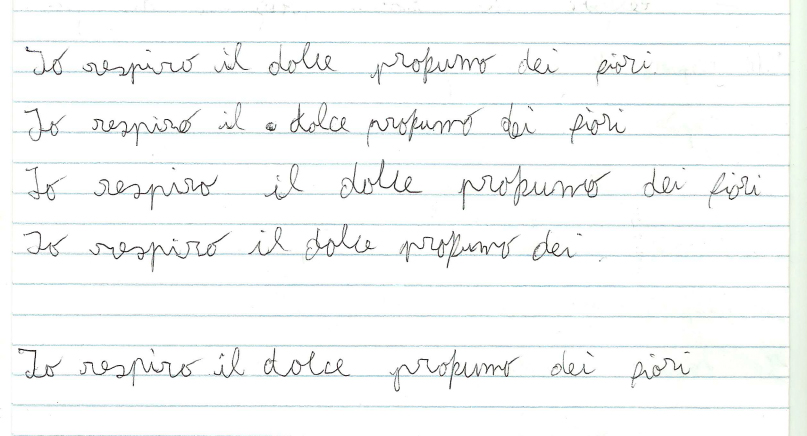 Io respiro il dolce profumo dei fiori.
Io respiro il dolce profumo dei fiori
Io respiro il dolce profumo dei fiori
Io respiro il dolce profumo dei
Io respiro il dolce profumo dei fiori